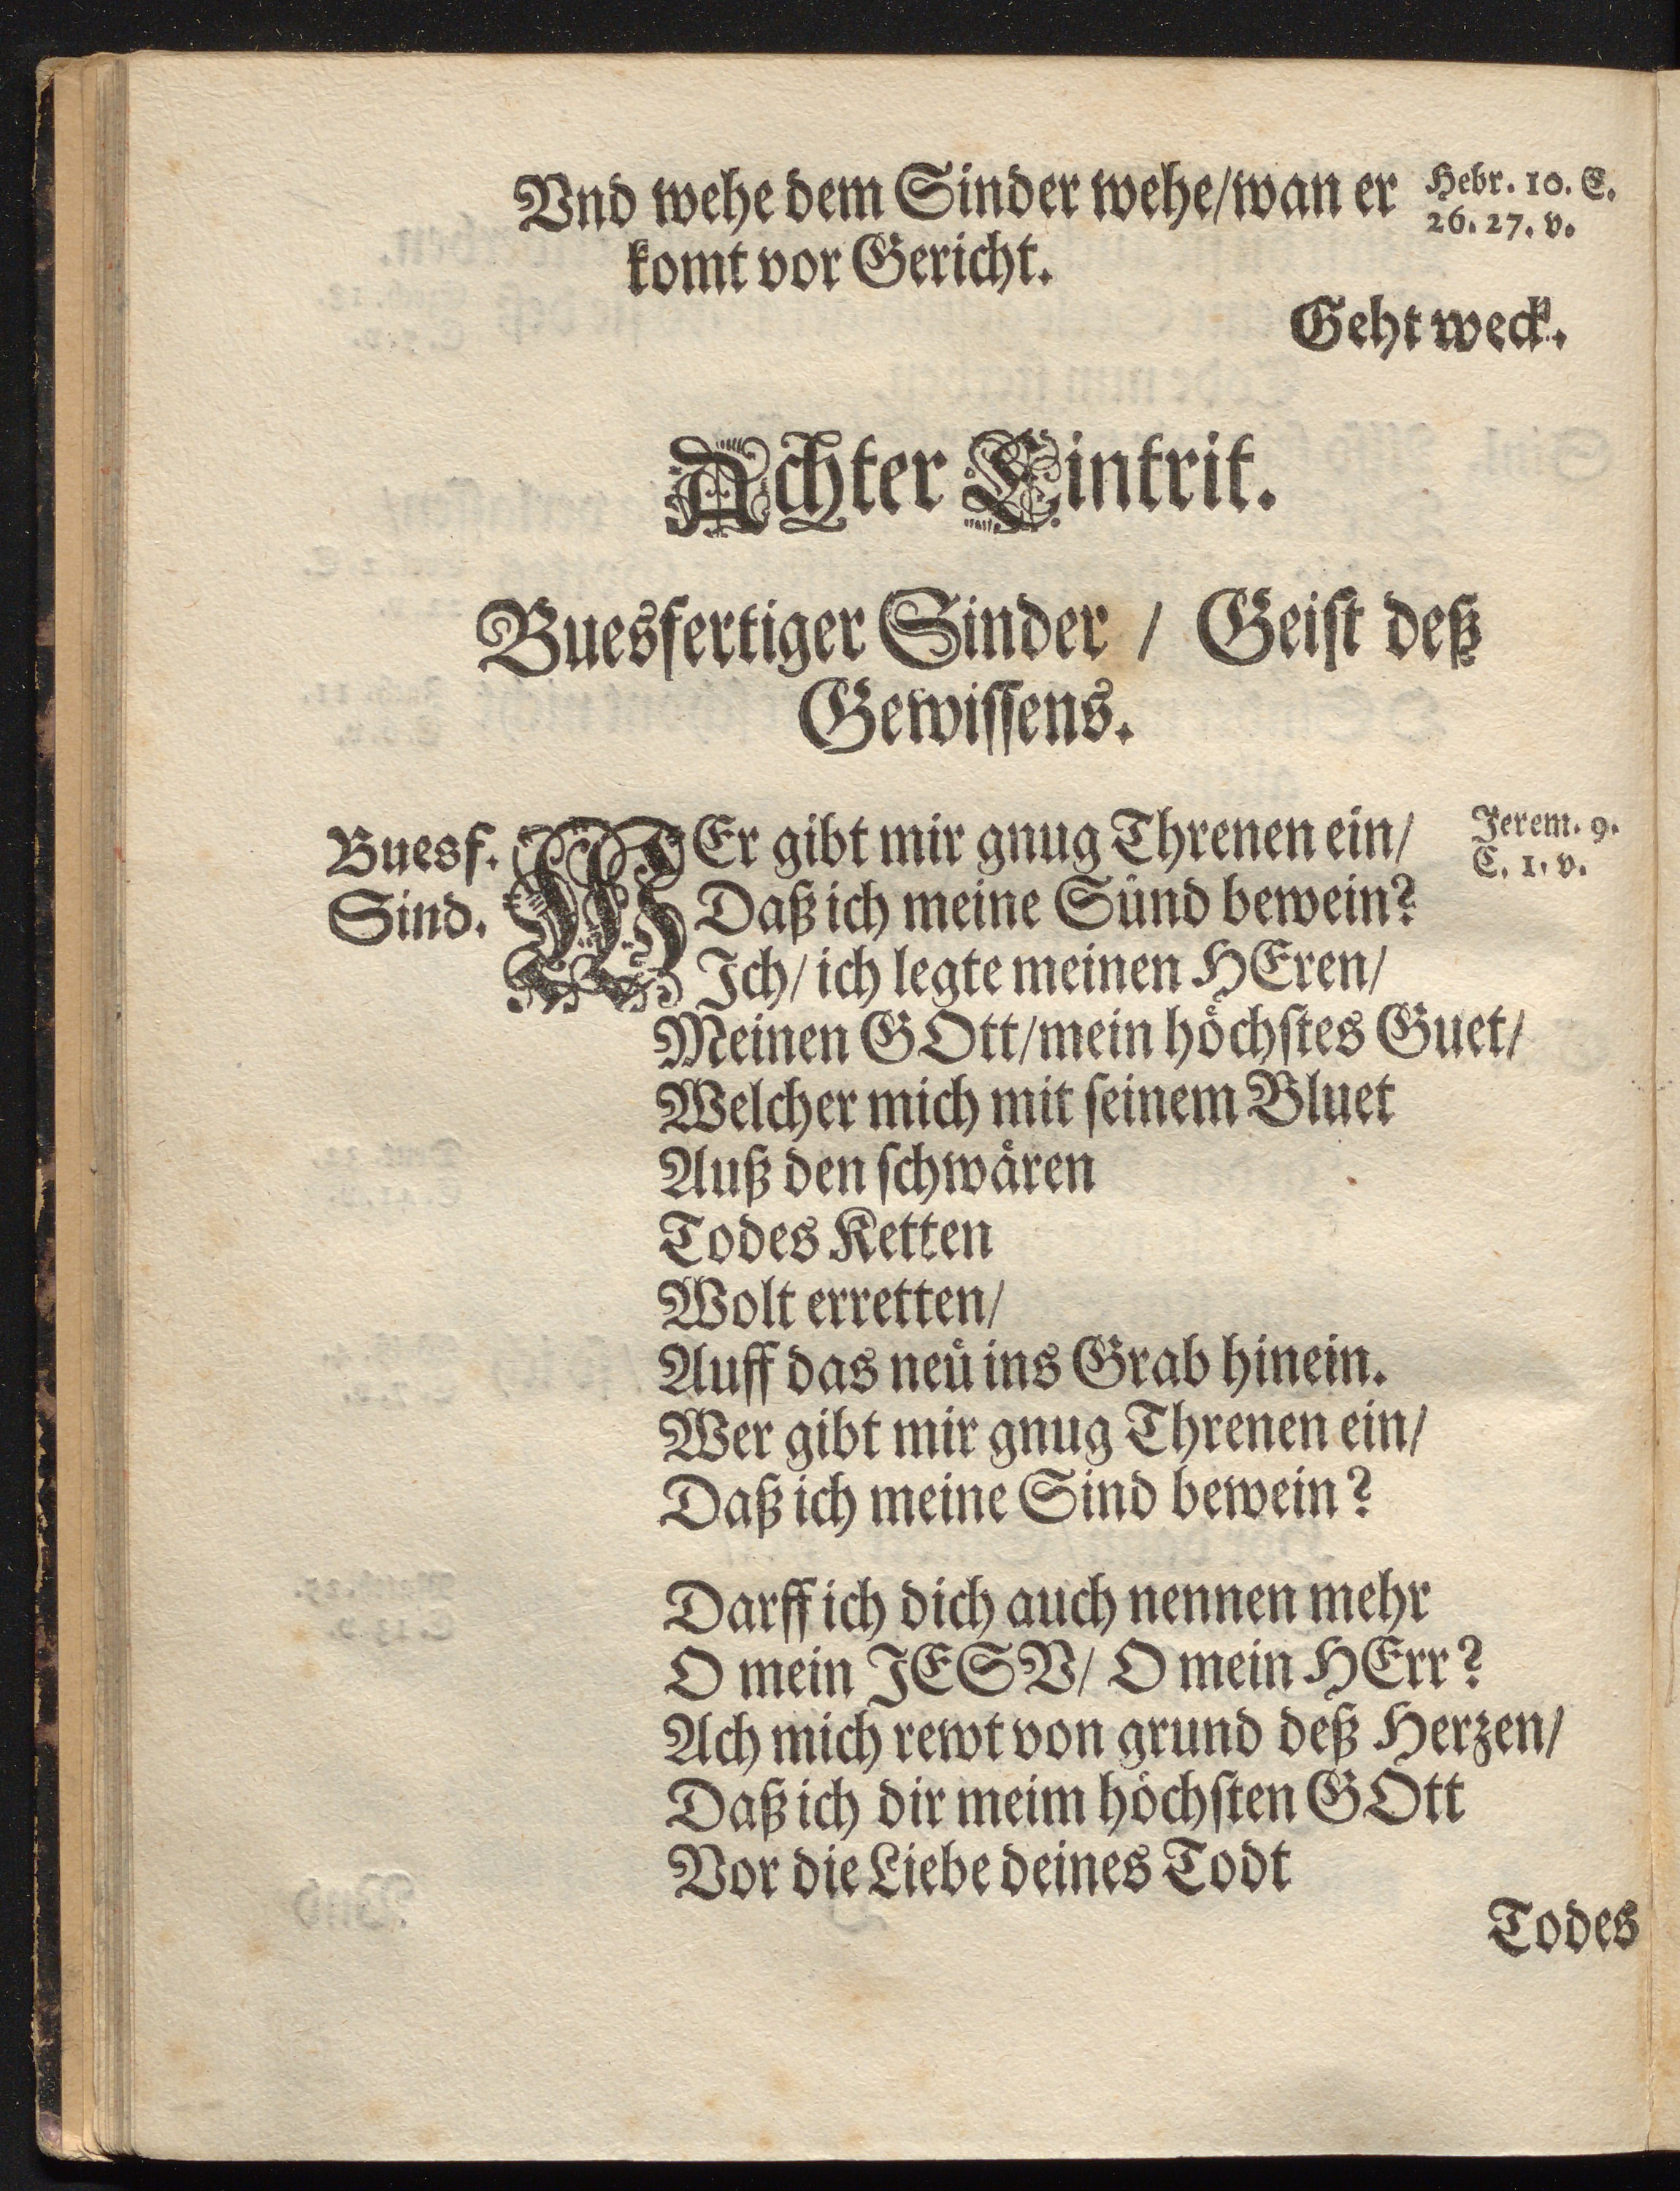 Vnd wehe dem Sinder wehe/wan er
Hebr. 10. C.
26. 27. v.
komt vor Gericht.
Geht weck.
Achter Eintrit.
Buesfertiger Sinder / Geiſt deß
Gewiſſens.
Buesf.
Sind.
WEr gibt mir gnug Threnen ein/
Jerem. 9.
C. 1. v.
Daß ich meine Sünd bewein?
Ich/ ich legte meinen HEren/
Meinen GOtt/mein hoͤchſtes Guet/
Welcher mich mit ſeinem Bluet
Auß den ſchwaͤren
Todes Ketten
Wolt erretten/
Auff das neuͤ ins Grab hinein.
Wer gibt mir gnug Threnen ein/
Daß ich meine Sind bewein?
Darff ich dich auch nennen mehr
O mein JESV/ O mein HErr?
Ach mich rewt von grund deß Herzen/
Daß ich dir meim hoͤchſten GOtt
Vor die Liebe deines Todt
Todes